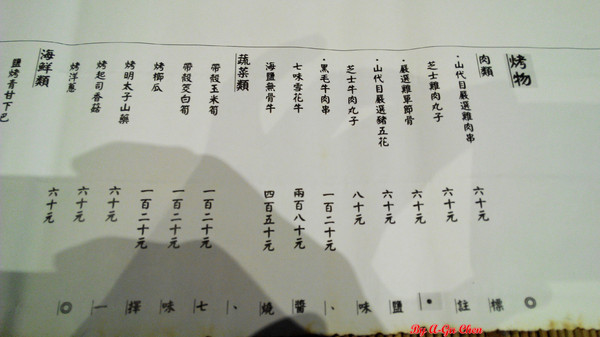 烤物
肉類
·山代目嚴選雞肉串 六十元
芝士雞肉丸子 六十元
·嚴選雞單節骨 六十元
·山代目嚴選豬五花 六十元
芝士牛肉丸子 八十元
·黑毛牛肉串 一百二十元
七味雪花牛 兩百八十元
海鹽無骨牛 四百五十元
蔬菜類
帶殼玉米筍 一百二十元
帶殼茭白筍 一百二十元
烤櫛瓜 一百二十元
烤明太子山藥 六十元
烤起司香菇 六十元
烤洋蔥 六十元
海鮮類
鹽烤青甘下巴
◎標註·鹽味、醬燒、七味擇一◎
By A-Gu Chen